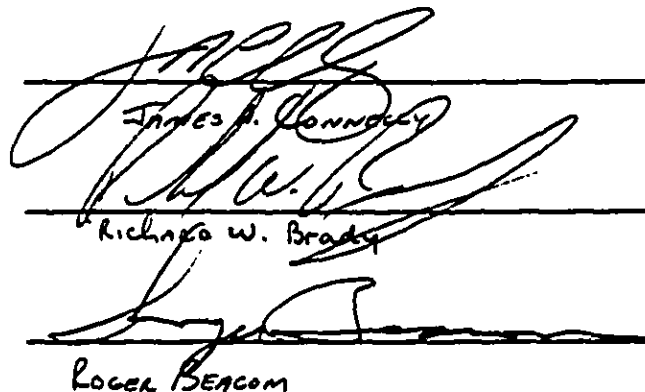 James A. Connolly
Richard W. Brady
Roger Beacom